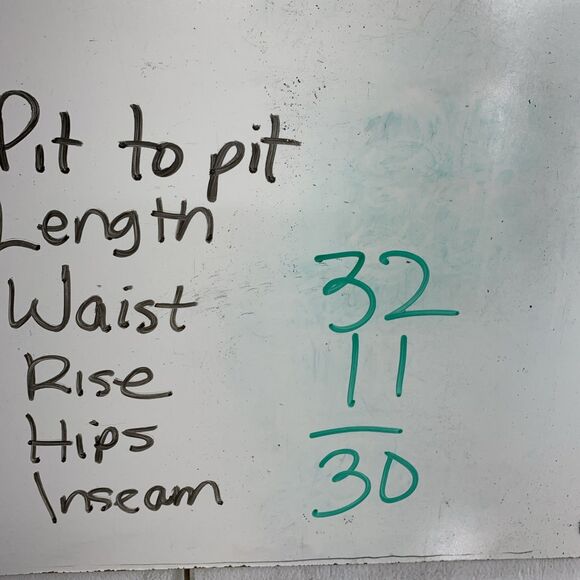 Pit to pit
Length
Waist 32
Rise 11
Hips —
Inseam 30